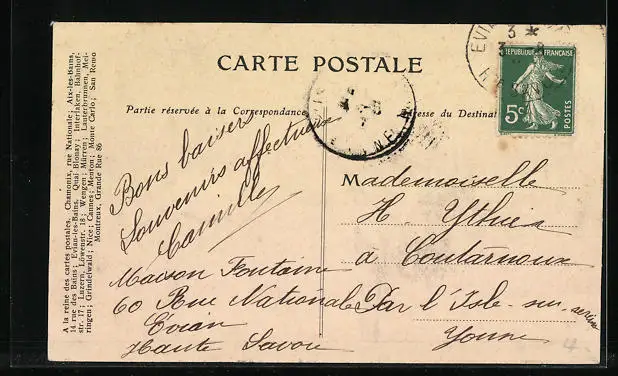 CARTE POSTALE
Partie réservée à la Correspondance
Adresse du Destinat
EVIAN
3 *
RÉPUBLIQUE FRANÇAISE
5c
POSTES
Bons baisers
Souvenirs affectueux
Camille
Maison Fontaine
60 Rue Nationale
Évian
Haute Savoie
Mademoiselle
H.
à Coutarnoux
Par l'Isle-sur-serein
Yonne
A la reine des cartes postales, Chamonix, rue Nationale; Aix-les-Bains,
14 rue des Bains; Evian-les-Bains, Quai Blonay; Interlaken, Bahnhof-
str. 17; Luzern, Löwenstr. 18; Wengen; Mürren; Lauterbrunnen, Mei-
ringen; Grindelwald; Nice; Cannes; Menton; Monte Carlo; San Remo
Montreux, Grande Rue 86